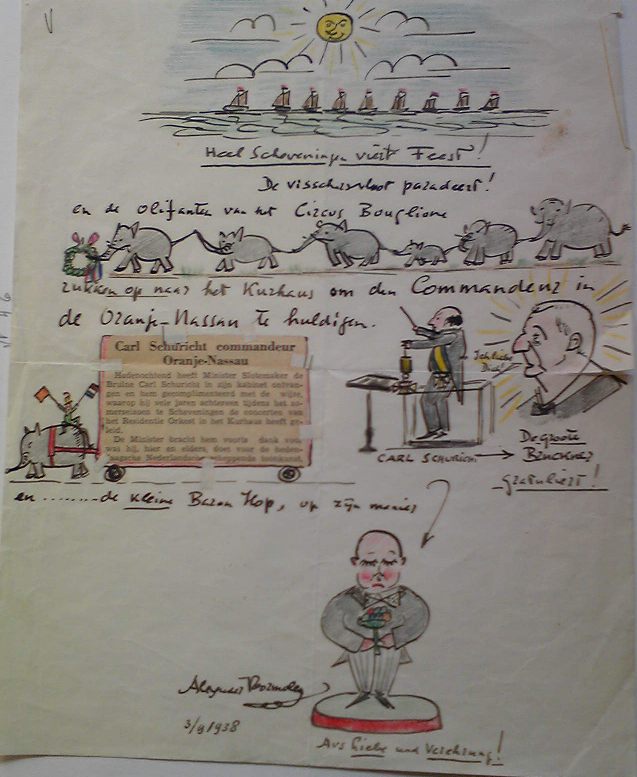 Heel Scheveningen viert Feest!
De visschersvloot paradeert!
en de olifanten van het Circus Bouglione
rukken op naar het Kurhaus om den Commandeur in
de Oranje-Nassau te huldigen.
Carl Schuricht commandeur
Oranje-Nassau
Hedenochtend heeft Minister Slotemaker de
Bruïne Carl Schuricht in zijn kabinet ontvan-
gen en hem gecomplimenteerd met de wijze,
waarop hij vele jaren achtereen tijdens het zo-
merseizoen te Scheveningen de concerten van
het Residentie Orkest in het Kurhaus heeft ge-
leid.
De Minister bracht hem voorts dank voor
was hij, hier en elders, doet voor de heden-
daagsche Nederlandsche scheppende toonkunst.
Ich liebe
Dich!
CARL SCHURICHT
De Groote
Bruckner
gratuliert!
en ........ de kleine Baron Hop, op zijn manier
3/9 1938
Aus Liebe und Verehrung!